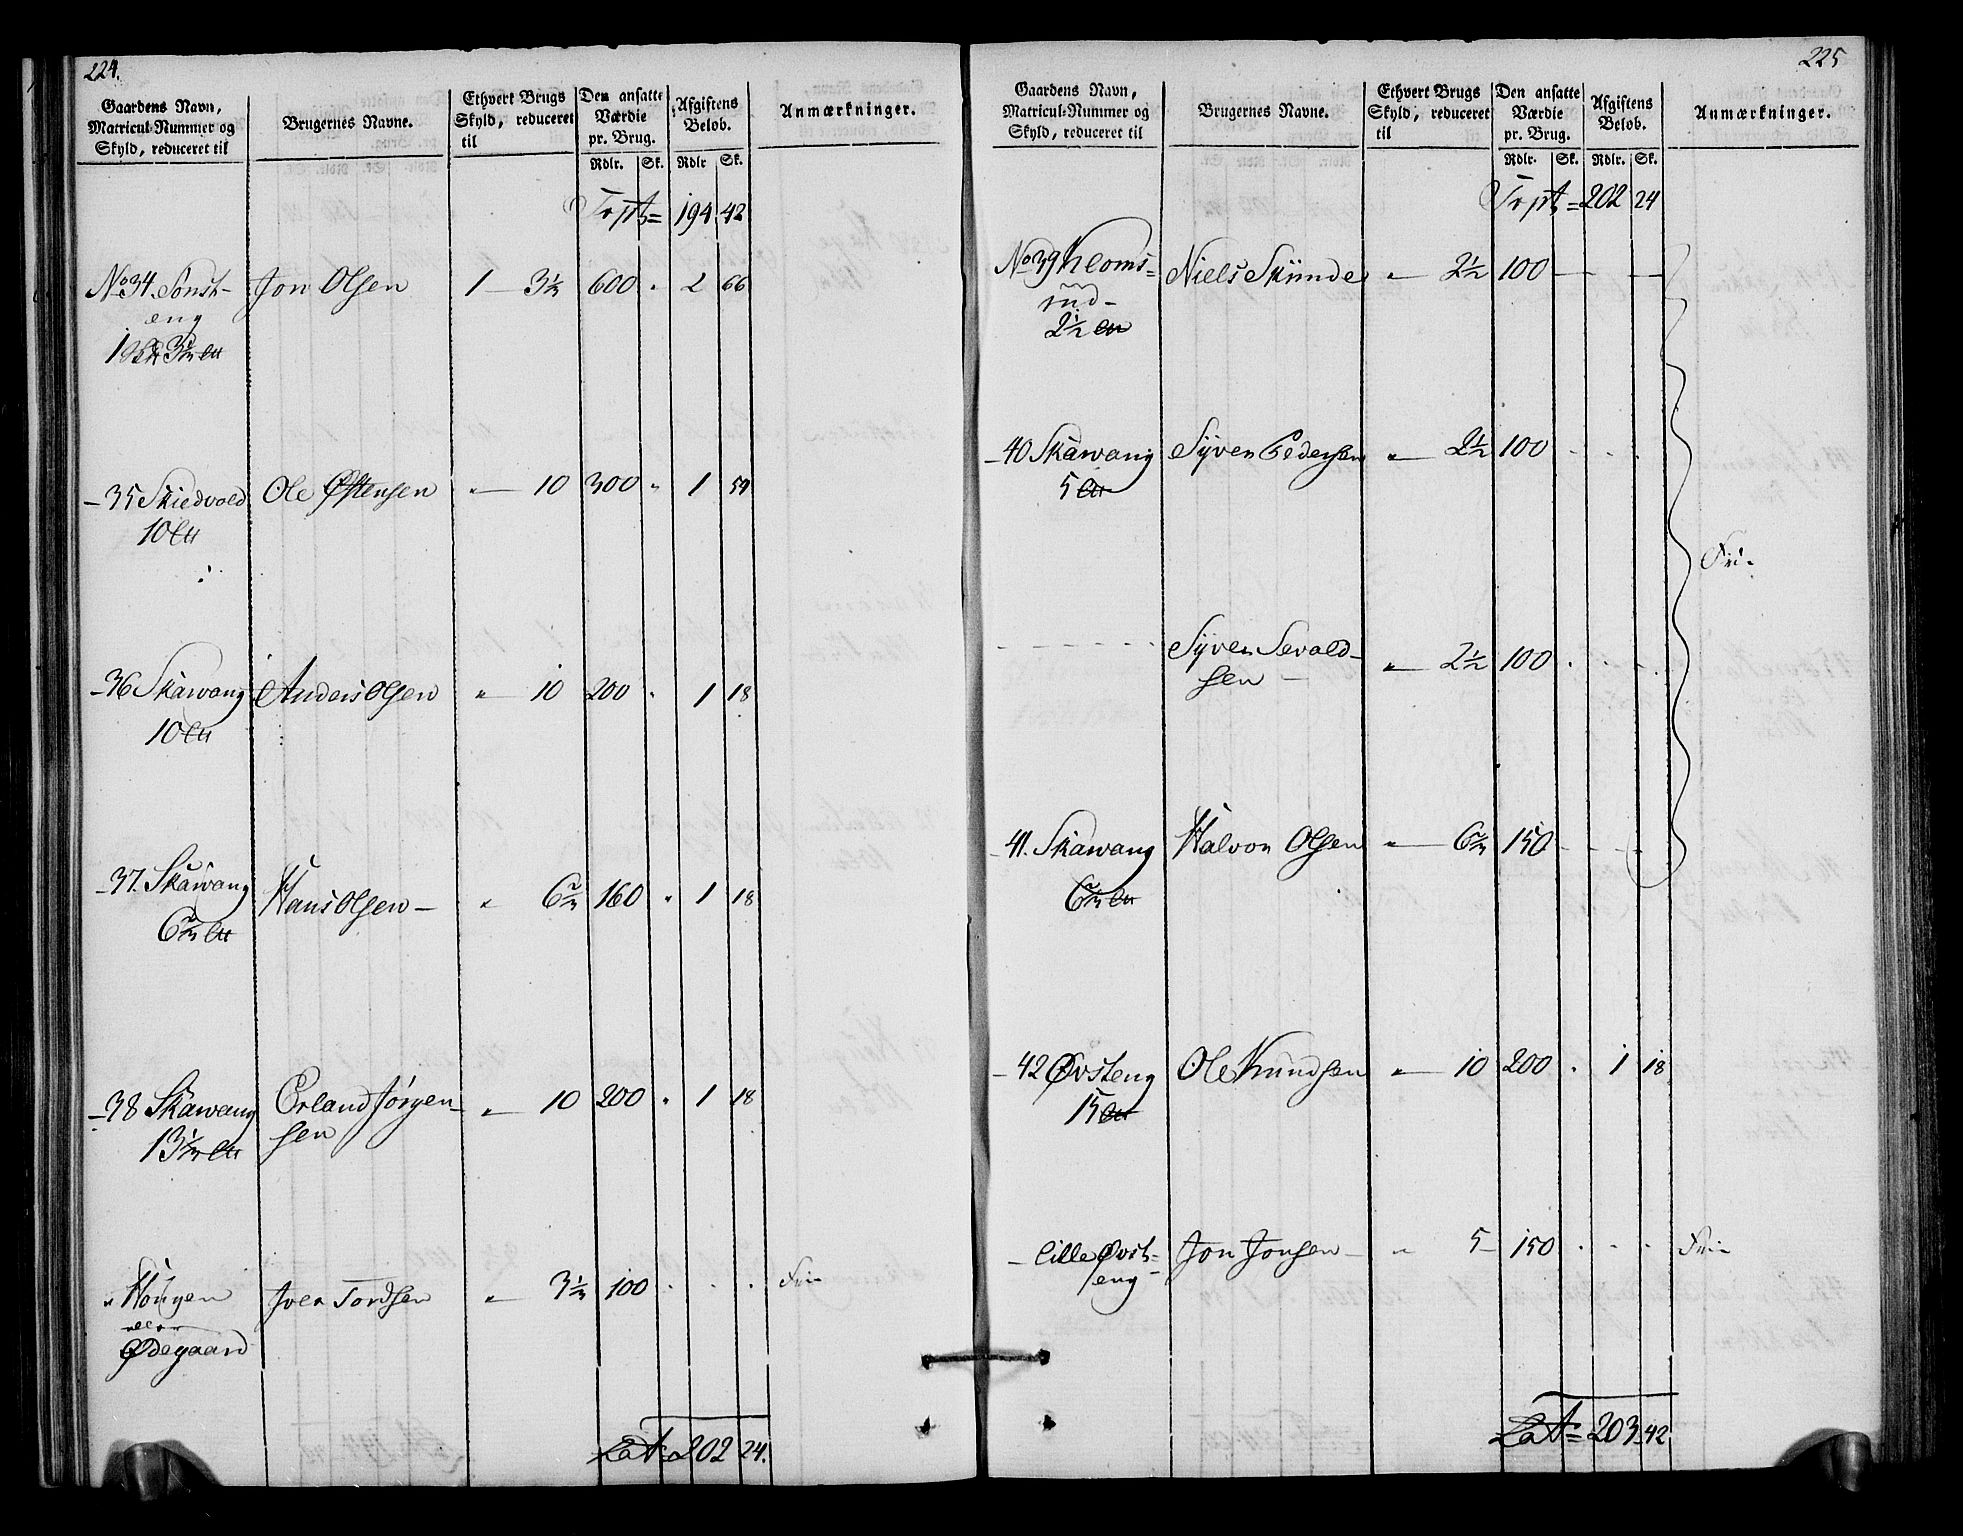 224.
Gaardens Navn, Matricul-Nummer og Skyld, reduceret til | Brugernes Navne. | Ethvert Brugs Skyld, reduceret til | Den ansatte Værdie pr. Brug. Rdlr. Sk. | Afgiftens Beløb. Rdlr Sk. | Anmærkninger.
Trpt = 194 42
No 34 Sønst- Jon Olsen 1 — 3½ 600 " 2 66
eng
- 35 Skiedvold Ole Østensen " — 10 300 " 1 54
10
- 36 Skawang Anders Olsen " 10 200 " 1 18
10
- 37. Skawang Hans Olsen - " 6⅔ 160 " 1 18
6⅔
- 38 Skawang Erland Jørgen- " — 10 200 " 1 18
13⅓ sen
" Hougen Iver Tordsen " — 3⅓ 100 . . . Fri-
eller
Ødegaard
Lat = 202 24.
225
Gaardens Navn, Matricul-Nummer og Skyld, reduceret til | Brugernes Navne. | Ethvert Brugs Skyld, reduceret til | Den ansatte Værdie pr. Brug. Rdlr. Sk. | Afgiftens Beløb. Rdlr. Sk. | Anmærkninger.
Trpt = 202 24
No 39 Niels Skunde " — 2½ 100 — — —
rud-
2½
- 40 Skawang Syver Pedersen " — 2½ 100 . . .
5
Fri-
- - - - - - Syver Sevald- " — 2½ 100 . . .
sen -
- 41. Skawang Halvor Olsen " — 6⅔ 150 - - -
6⅔
- 42 Øvsteng Ole Knudsen " — 10 200 . 1 18
15
- Lille Øvst- Jon Jonsen - " 5- 150 . . . Fri-
eng-
Lat = 203 42.